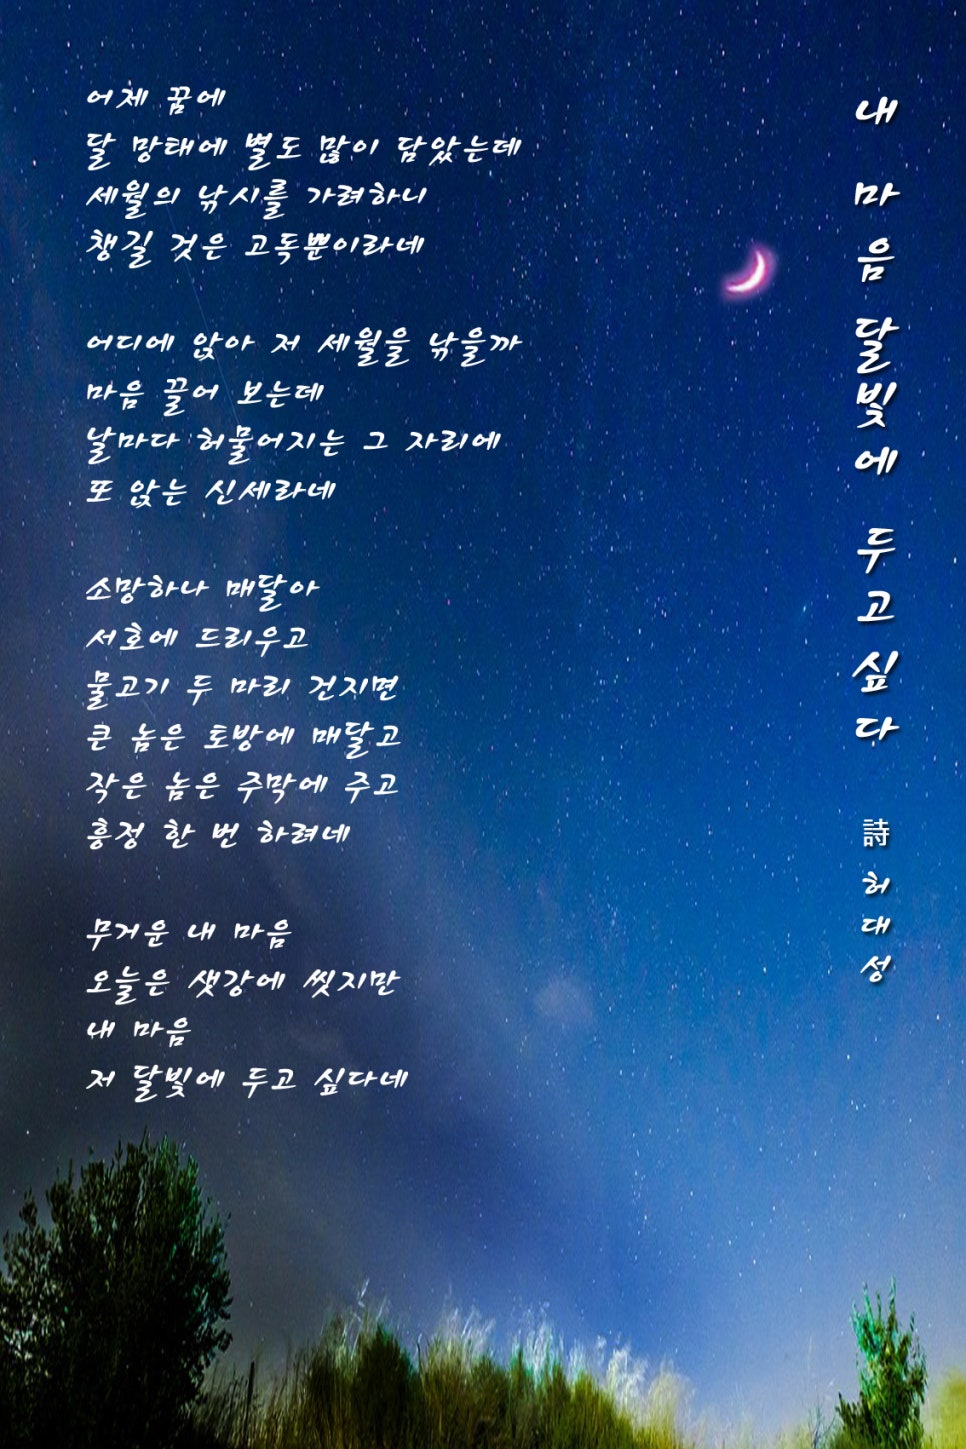 내 마음 달빛에 두고싶다
詩 허대성
어체 꿈에
달 망태에 별도 많이 담았는데
세월의 낚시를 가려하니
챙길 것은 고독뿐이라네
어디에 앉아 저 세월을 낚을까
마음 끌어 보는데
날마다 허물어지는 그 자리에
또 앉는 신세라네
소망하나 매달아
서호에 드리우고
물고기 두 마리 건지면
큰 놈은 토방에 매달고
작은 놈은 주막에 주고
흥정 한 번 하려네
무거운 내 마음
오늘은 샛강에 씻지만
내 마음
저 달빛에 두고 싶다네